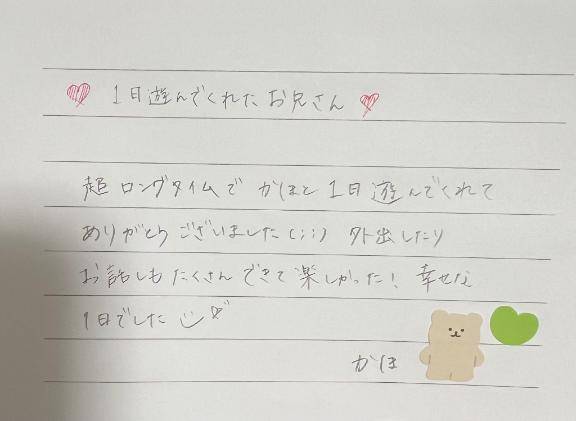 ♡ 1日遊んでくれたお兄さん ♡
超ロングタイムでかほと1日遊んでくれて
ありがとうございました(;;) 外出したり
お話しもたくさんできて楽しかった！幸せな
1日でした
かほ